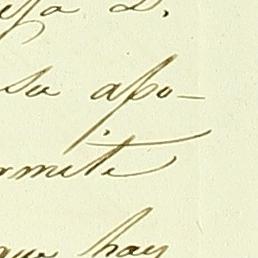 su apo-
rmite
que hay